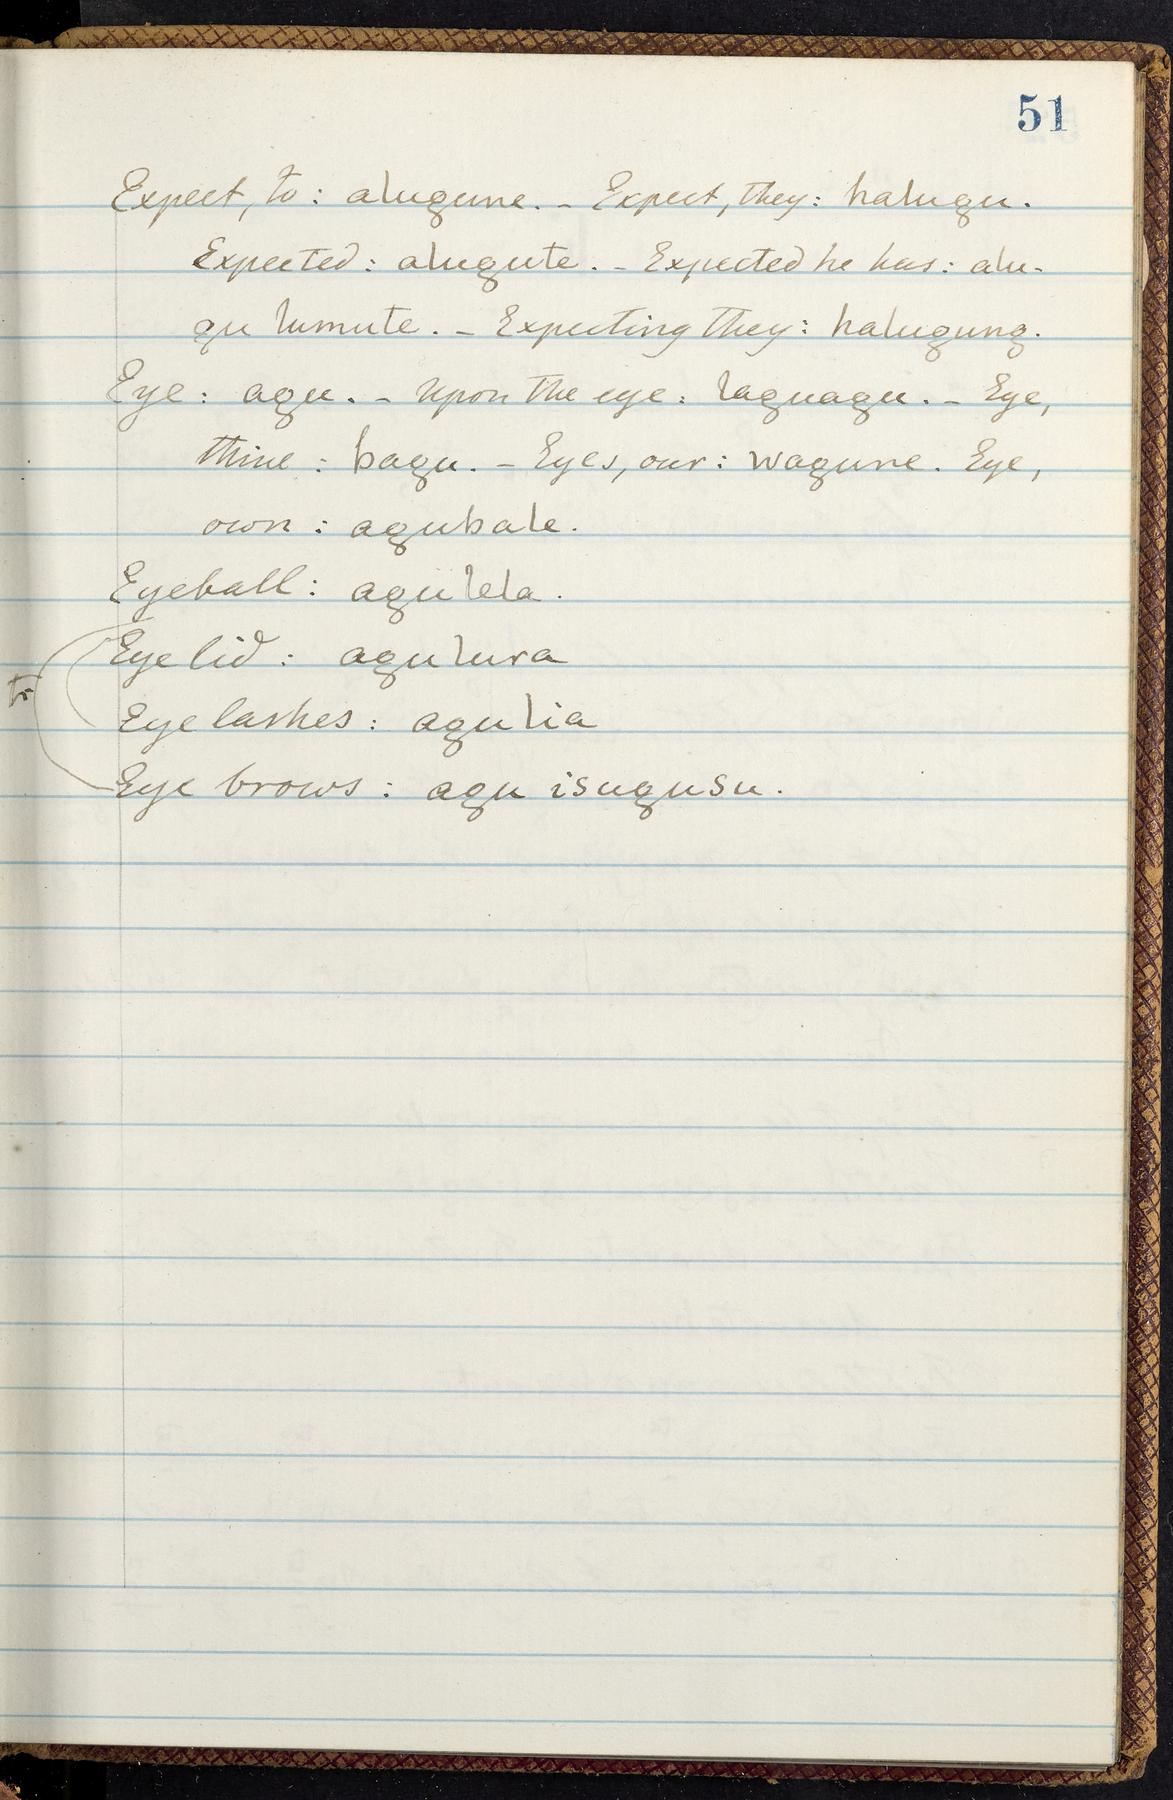 51
Expect, to: alugune. - Expect, they: halugu.
Expected: alugute. - Expected he has: alu-
gu lumute. - Expecting they: halugung.
Eye: agu. - Upon the eye: laguagu. - Eye,
thine: bagu. - Eyes, our: wagune. Eye,
own: agubale.
Eyeball: agulela.
Eye lid: agulura
tr
Eye lashes: agulia
Eye brows: agu isugusu.